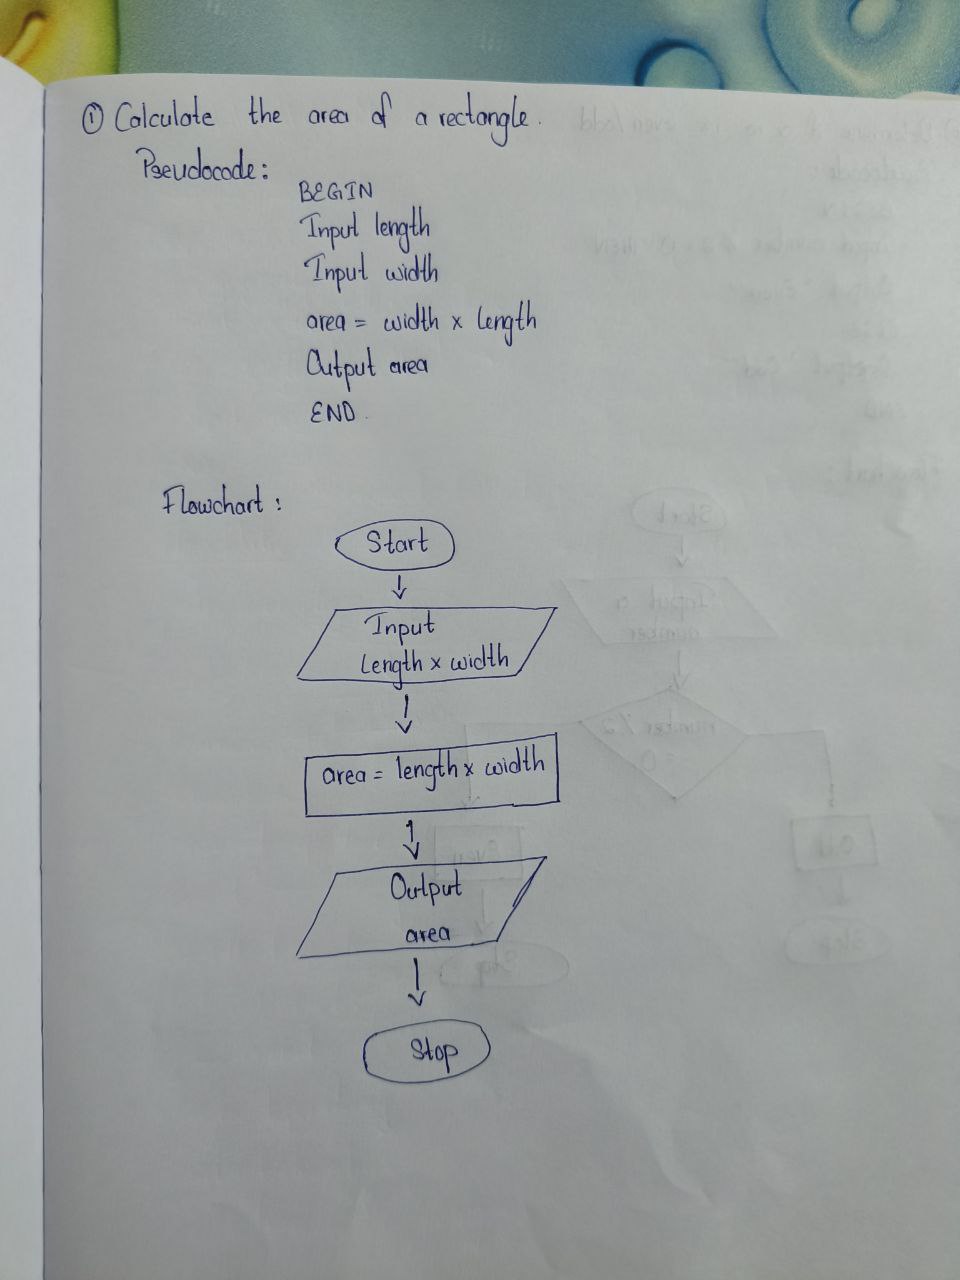 ① Calculate the area of a rectangle.
Pseudocode:
BEGIN
Input length
Input width
area = width x length
Output area
END.
Flowchart:
Start
Input
length x width
area = length x width
Output
area
Stop